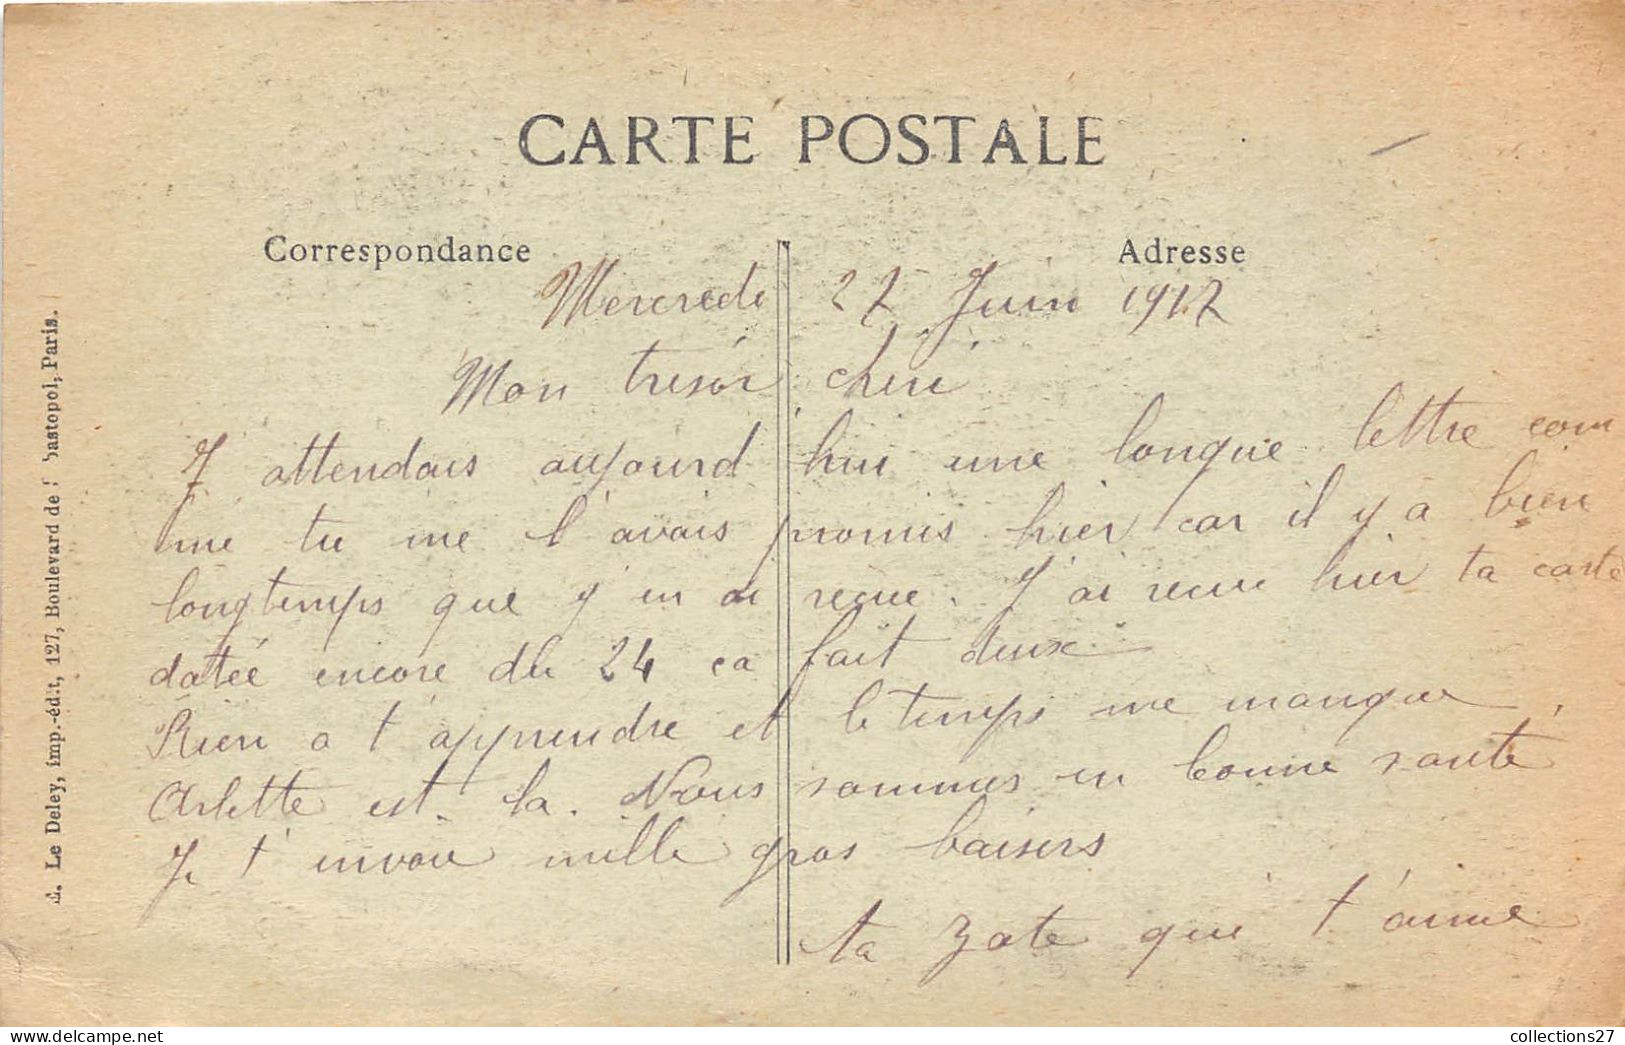 CARTE POSTALE
Correspondance
Adresse
Mercredi 27 Juin 1917
Mon trésor chéri
J attendais aujourd hui une longue lettre com
me tu me l'avais promis hier car il y a bien
longtemps que j'en ai reçue. J'ai reçue hier ta carte
datée encore du 24 ça fait deux
Rien a t'apprendre et le temps me manque.
Arlette est là. Nous sommes en bonne santé
Je t'envoie mille gros baisers
ta Zote qui t'aime
Le Deley, imp.-édit, 127, Boulevard de Sébastopol, Paris.
collections27